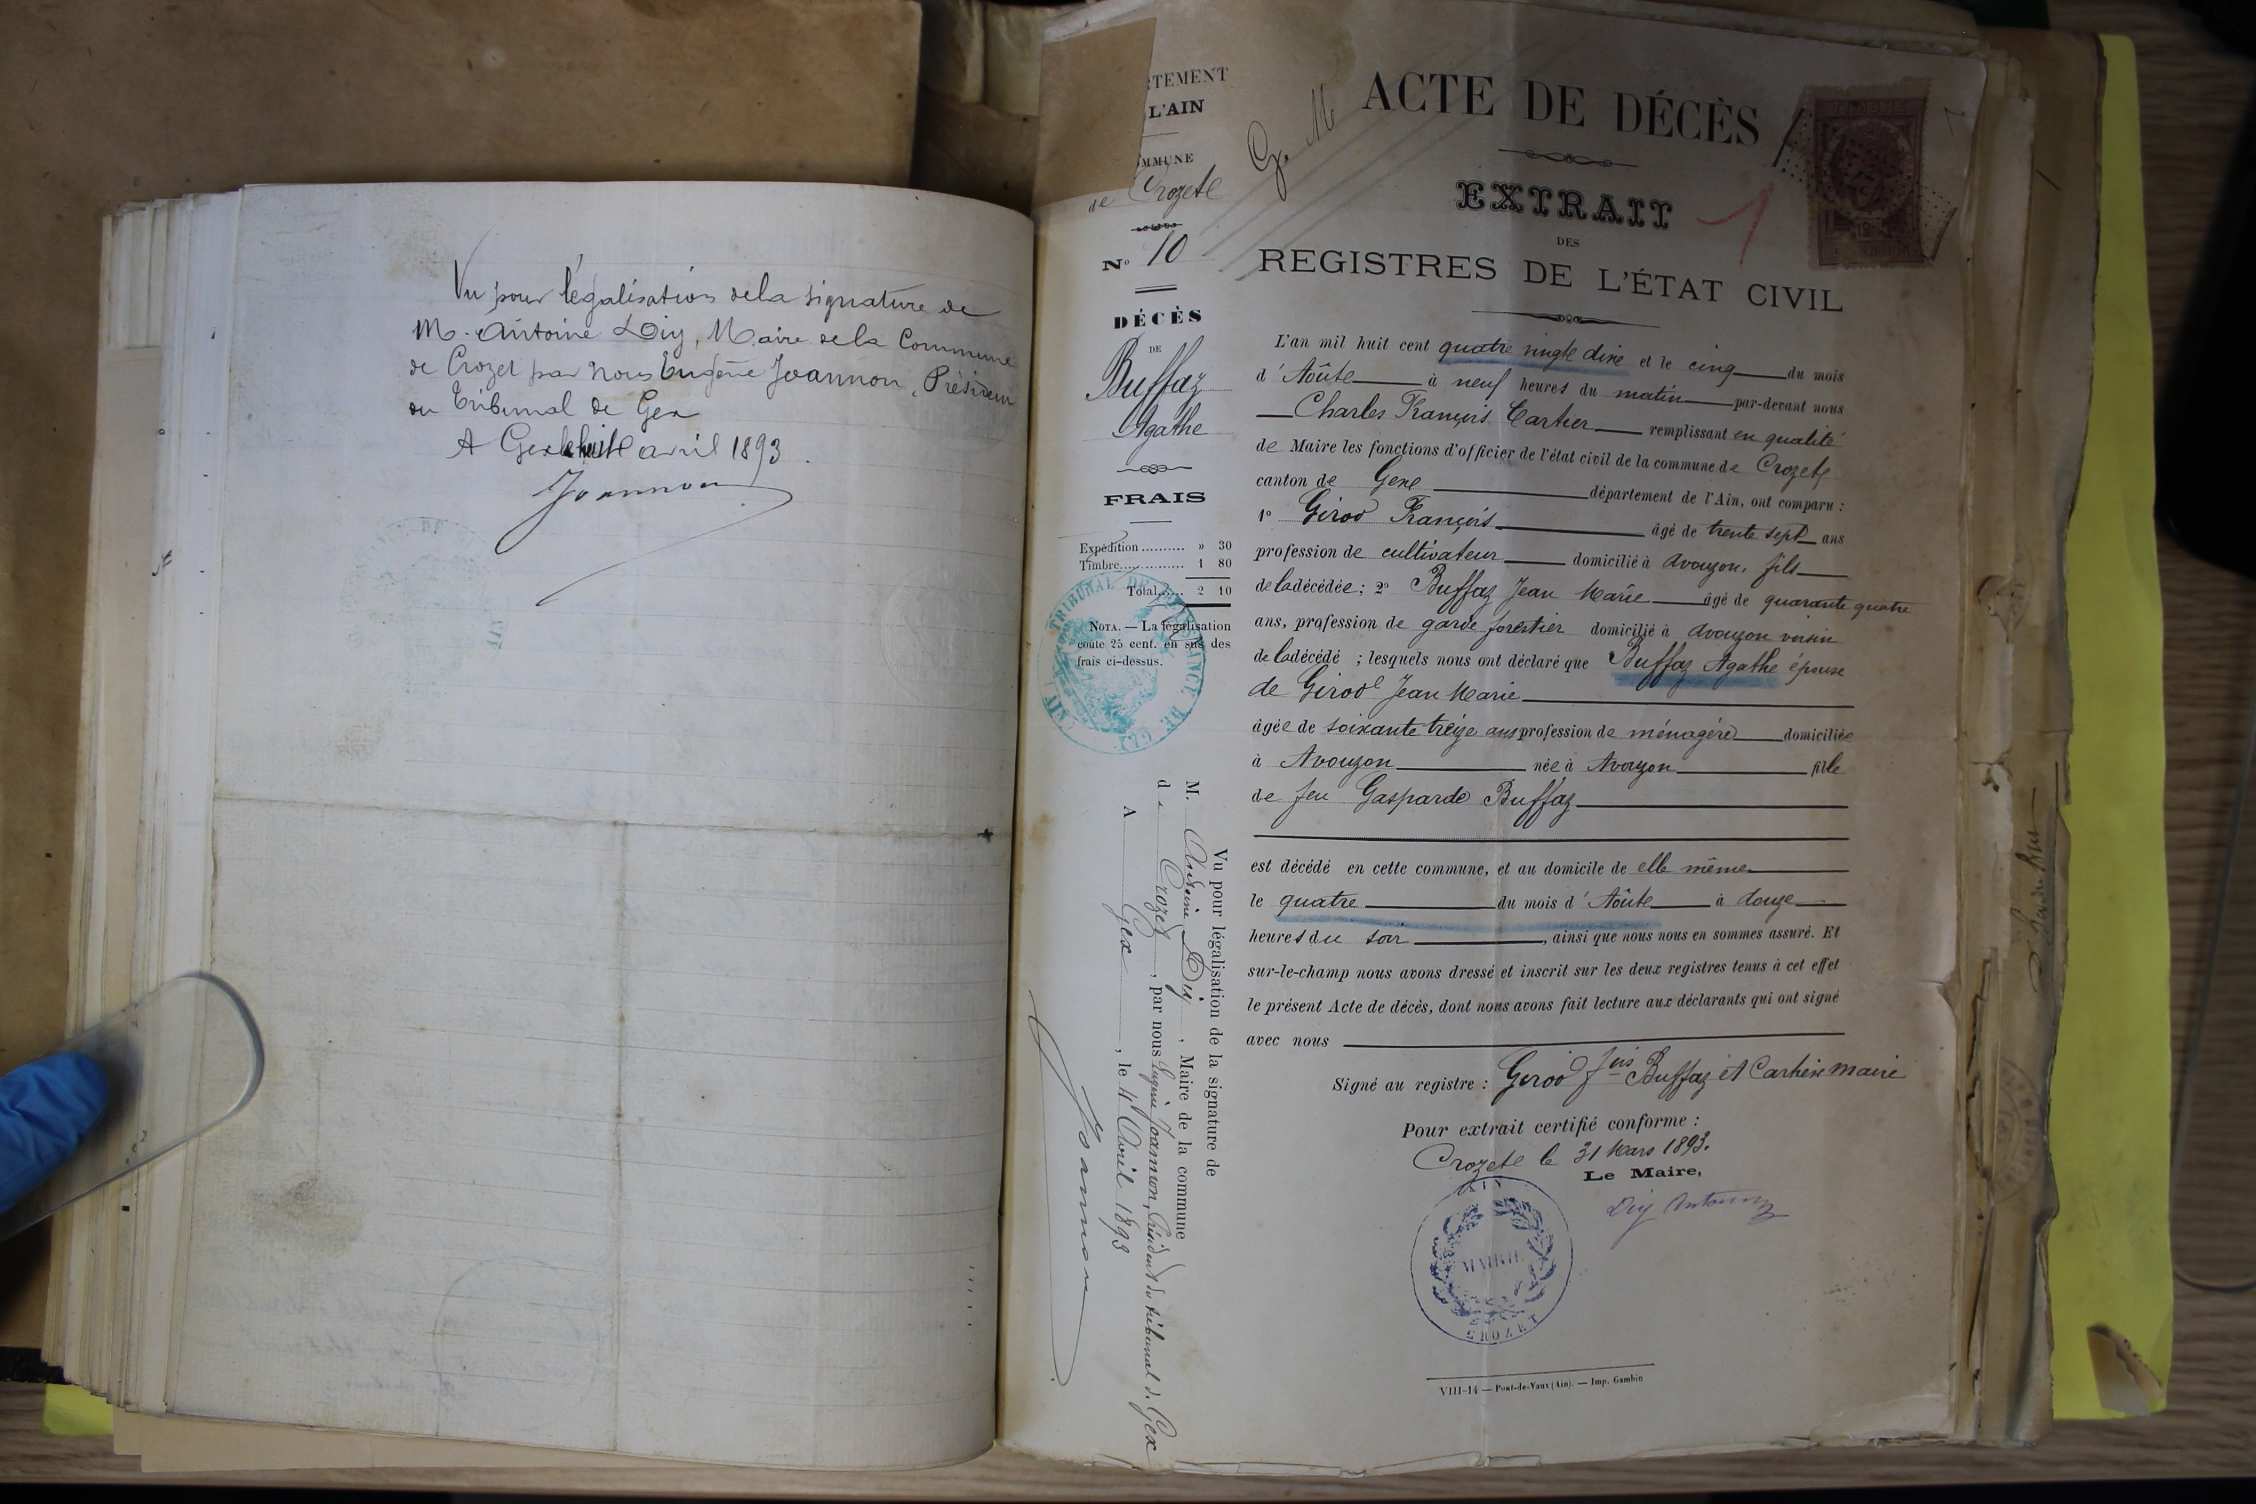 Vu pour légalisation de la signature de
M. Antoine Diy, Maire de la Commune
de Crozet par nous Eugène Joannon, Président
du Tribunal de Gex
A Gex le huit avril 1893.
Joannon
RTEMENT
L'AIN
OMMUNE
de Crozet
N° 10
DÉCÈS
DE
Buffaz
Agathe
FRAIS
Expédition .......... » 30
Timbre.............. 1 80
Total...... 2 10
NOTA. — La légalisation
coûte 25 cent. en sus des
frais ci-dessus.
TRIBUNAL DE 1RE INSTANCE DE GEX (AIN)
Vu pour légalisation de la signature de
M. Antoine Diy, Maire de la commune
de Crozet, par nous Eugène Joannon, Président du tribunal de Gex
A Gex, le 4 Avril 1893
Joannon
G. M
ACTE DE DÉCÈS
EXTRAIT
1
DES
REGISTRES DE L'ÉTAT CIVIL
L'an mil huit cent quatre vingt dixe et le cinq du mois
d'Aoûte à neuf heures du matin par-devant nous
Charles François Cartier remplissant en qualité
de Maire les fonctions d'officier de l'état civil de la commune de Crozet
canton de Gexe département de l'Ain, ont comparu :
1° Girod François âgé de trente sept ans
profession de cultivateur domicilié à avouzon, fils
de la décédée ; 2° Buffaz Jean Marie âgé de quarante quatre
ans, profession de garde forestier domicilié à avouzon voisin
de la décédé ; lesquels nous ont déclaré que Buffaz Agathe épouse
de Girod Jean Marie
âgée de soixante treize ans profession de ménagère domiciliée
à Avouzon née à Avouzon fille
de feu Gasparde Buffaz
est décédé en cette commune, et au domicile de elle même
le quatre du mois d'Aoûte à douze
heures du soir, ainsi que nous nous en sommes assuré. Et
sur-le-champ nous avons dressé et inscrit sur les deux registres tenus à cet effet
le présent Acte de décès, dont nous avons fait lecture aux déclarants qui ont signé
avec nous
Signé au registre : Girod fois Buffaz et Cartier maire
Pour extrait certifié conforme :
Crozet le 31 Mars 1893.
Le Maire,
Diy Antoine
AIN
MAIRIE
CROZET
VIII-14 — Pont-de-Vaux (Ain). — Imp. Gambin